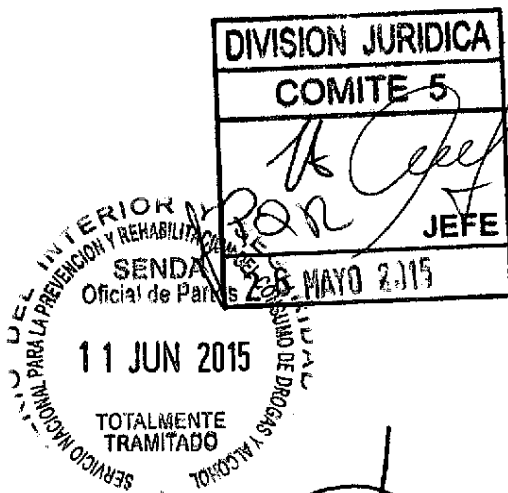 DIVISION JURIDICA
COMITE 5
JEFE
MAYO
DEL INTERIOR Y
SERVICIO NACIONAL PARA LA PREVENCION Y REHABILITACION DEL CONSUMO DE DROGAS Y ALCOHOL
SENDA
Oficial de Partes
11 JUN 2015
TOTALMENTE
TRAMITADO